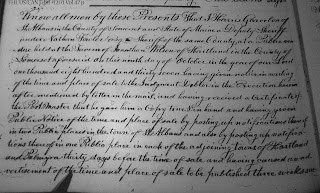 Know all men by these Presents that I Harris Garcelon of
St Albans in the County of Somerset and State of Maine a Deputy Sheriff
under Nathan Fowler Esq the Sheriff of the same County at a Public
sale held at the Town of Jonathan Nelson of Hartland in the County of
Somerset aforesaid on this ninth day of October in the year of our Lord
one thousand eight hundred and thirty seven having given notice in writing
of the time and place of sale to the Judgment Debtor in the Execution here
after mentioned by letter in the mail and having received a Certificate of
the Post Master that he gave him a Copy true & in hand and having given
Public Notice of the time and place of sale by posting up notifications thereof
in two Public places in the town of St Albans and also by posting up notifica
tions thereof in one Public place in each of the adjoining towns of Hartland
and Palmyra thirty days before the time of sale and having caused an ad
vertisement of the time and place of sale to be published three weeks suc